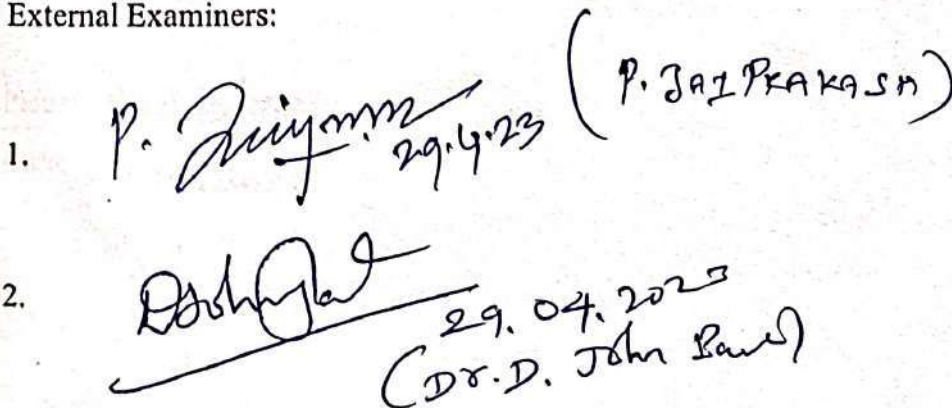 External Examiners:
1. P. 29.4.23 (P. JAI PRAKASH)
2. 29.04.2023
(Dr. D. John Paul)